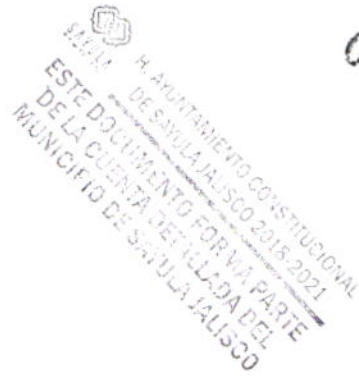 SAYULA
H. AYUNTAMIENTO CONSTITUCIONAL
DE SAYULA JALISCO 2018-2021
ESTE DOCUMENTO FORMA PARTE
DE LA CUENTA DETALLADA DEL
MUNICIPIO DE SAYULA JALISCO